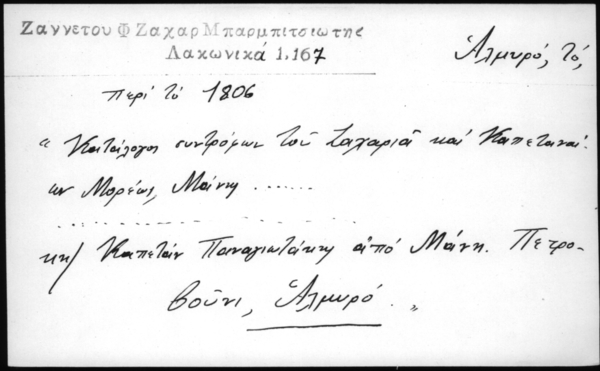 Ζαννετου Φ Ζαχαρ Μπαρμπιτσιωτης
Λακωνικά 1.167
Ἁλμυρό, τό,
περί τό 1806
“ Κατάλογος συντρόφων τοῦ Ζαχαριᾶ καί Καπεταναί-
ων Μορέως, Μάνης ......
..................
κκ/ Καπετάν Παναγιωτάκης ἀπό Μάνη. Πετρο-
βοῦνι, Ἁλμυρό. „